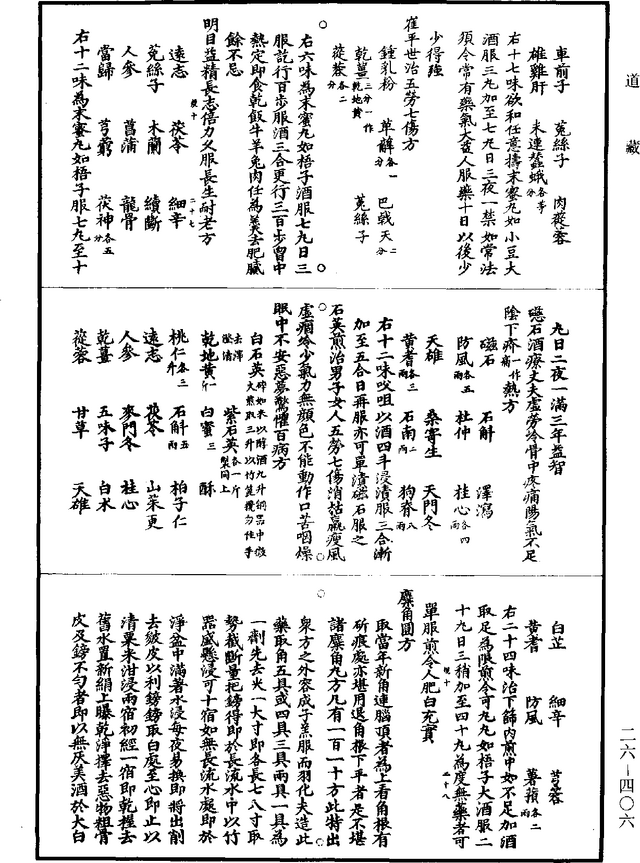 道藏
車前子　菟絲子　肉蓯蓉
雄雞肝　未連蠶蛾各等分
右十七味欲和任意擣末蜜丸如小豆大
酒服三丸加至七丸日三夜一禁如常法
須令常有藥氣大益人服藥十日以後少
少得強
崔平世治五勞七傷方
鍾乳粉　萆薢各一分　巴戟天二分
乾薑三分一作乾地黃　菟絲子
蓯蓉各二分
右六味為末蜜丸如梧子酒服七丸日三
服訖行百步服酒三合更行三百步胷中
熱定即食乾飯牛羊兔肉任為羹去肥膩
餘不忌
明目益精長志倍力久服長生耐老方
遠志　茯苓　細辛
菟絲子　木蘭　續斷
人參　菖蒲　龍骨
當歸　芎藭　茯神各五分
右十二味為末蜜丸如梧子服七丸至十
九日二夜一滿三年益智
磁石酒療丈夫虛勞冷骨中疼痛陽氣不足
陰下痟一作痛熱方
磁石　石斛　澤瀉
防風各五兩　杜仲　桂心各四兩
天雄　桑寄生　天門冬
黃耆各三兩　石南二兩　狗脊八兩
右十二味㕮咀以酒四斗浸漬服三合漸
加至五合日再服亦可單漬磁石服之
石英煎治男子女人五勞七傷消枯羸瘦風
虛痼冷少氣力無顏色不能動作口苦咽燥
眠中不安惡夢驚懼百病方
乾地黃一斤　白蜜三　酥
桃仁各三升　石斛五兩　柏子仁
遠志　茯苓　山茱萸
人參　麥門冬　桂心
乾薑　五味子　白朮
蓯蓉　甘草　天雄
白芷　細辛　芎藭
黃耆　防風　薯蕷各二兩
右二十四味治下篩內煎中如不足加酒
取足為限煎令可丸丸如梧子大酒服二
十丸日三稍加至四十丸為度無藥者可
單服煎令人肥白充實
麋角圓方
取當年新角連腦頂者為上看角根有
斫痕處亦堪用退角根下平者是不堪
諸麋角丸方凡有一百一十方此特出
衆方之外容成子羔服而羽化夫造此
藥取角五具或四具三具兩具一具為
一劑先去尖一大寸即各長七八寸取
勢截斷量把鎊得即於長流水中以竹
器盛懸浸可十宿如無長流水處即於
淨盆中滿著水浸每夜易換即將出削
去皺皮以利鎊鎊取白處至心即止以
清粟米泔浸兩宿初經一宿即乾握去
舊水置新絹上曝乾淨擇去惡物粗骨
皮及鎊不勻者即以無灰美酒於大白
二六—四〇六